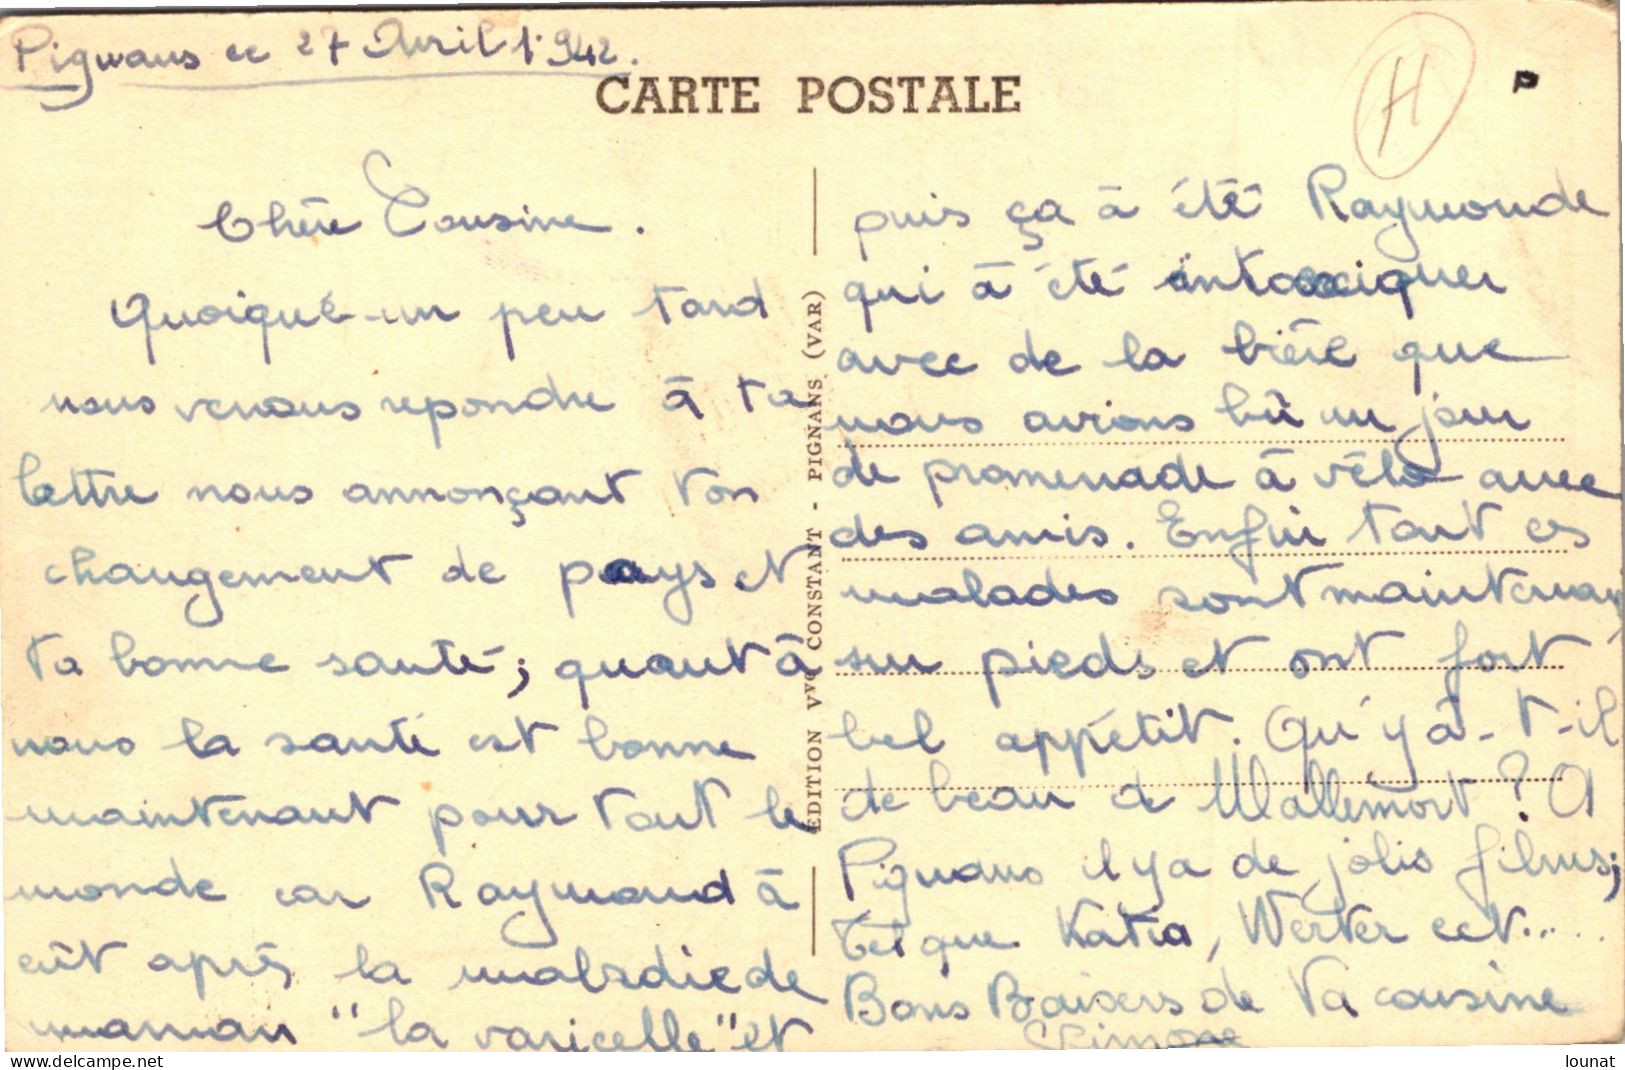 Pignans ce 27 Avril 1942.
CARTE POSTALE
H
P
Chère Cousine.
Quoique un peu tard
nous venons repondre à ta
lettre nous annonçant ton
changement de pays et
ta bonne santé; quant à
nous la santé est bonne
maintenant pour tout le
monde car Raymond à
eût après la maladie de
maman "la varicelle" et
EDITION Vve CONSTANT - PIGNANS (VAR)
puis ça à été Raymonde
qui à été intoxiquer
avec de la bière que
nous avions bû un jour
de promenade à vélo avec
des amis. Enfin tout ces
malades sont maintenant
sur pieds et ont fort
bel appétit. Qu'y à-t-il
de beau a Mallemort? A
Pignans il y a de jolis films;
tel que Katia, Werter ect.....
Bons Baisers de ta cousine
Simone
delcampe.net
lounat